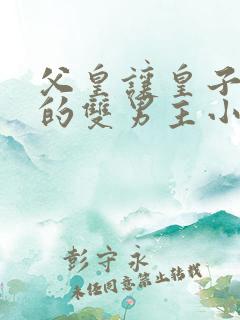 父皇讓皇子
的雙男主小
彭守永
未经同意禁止转载